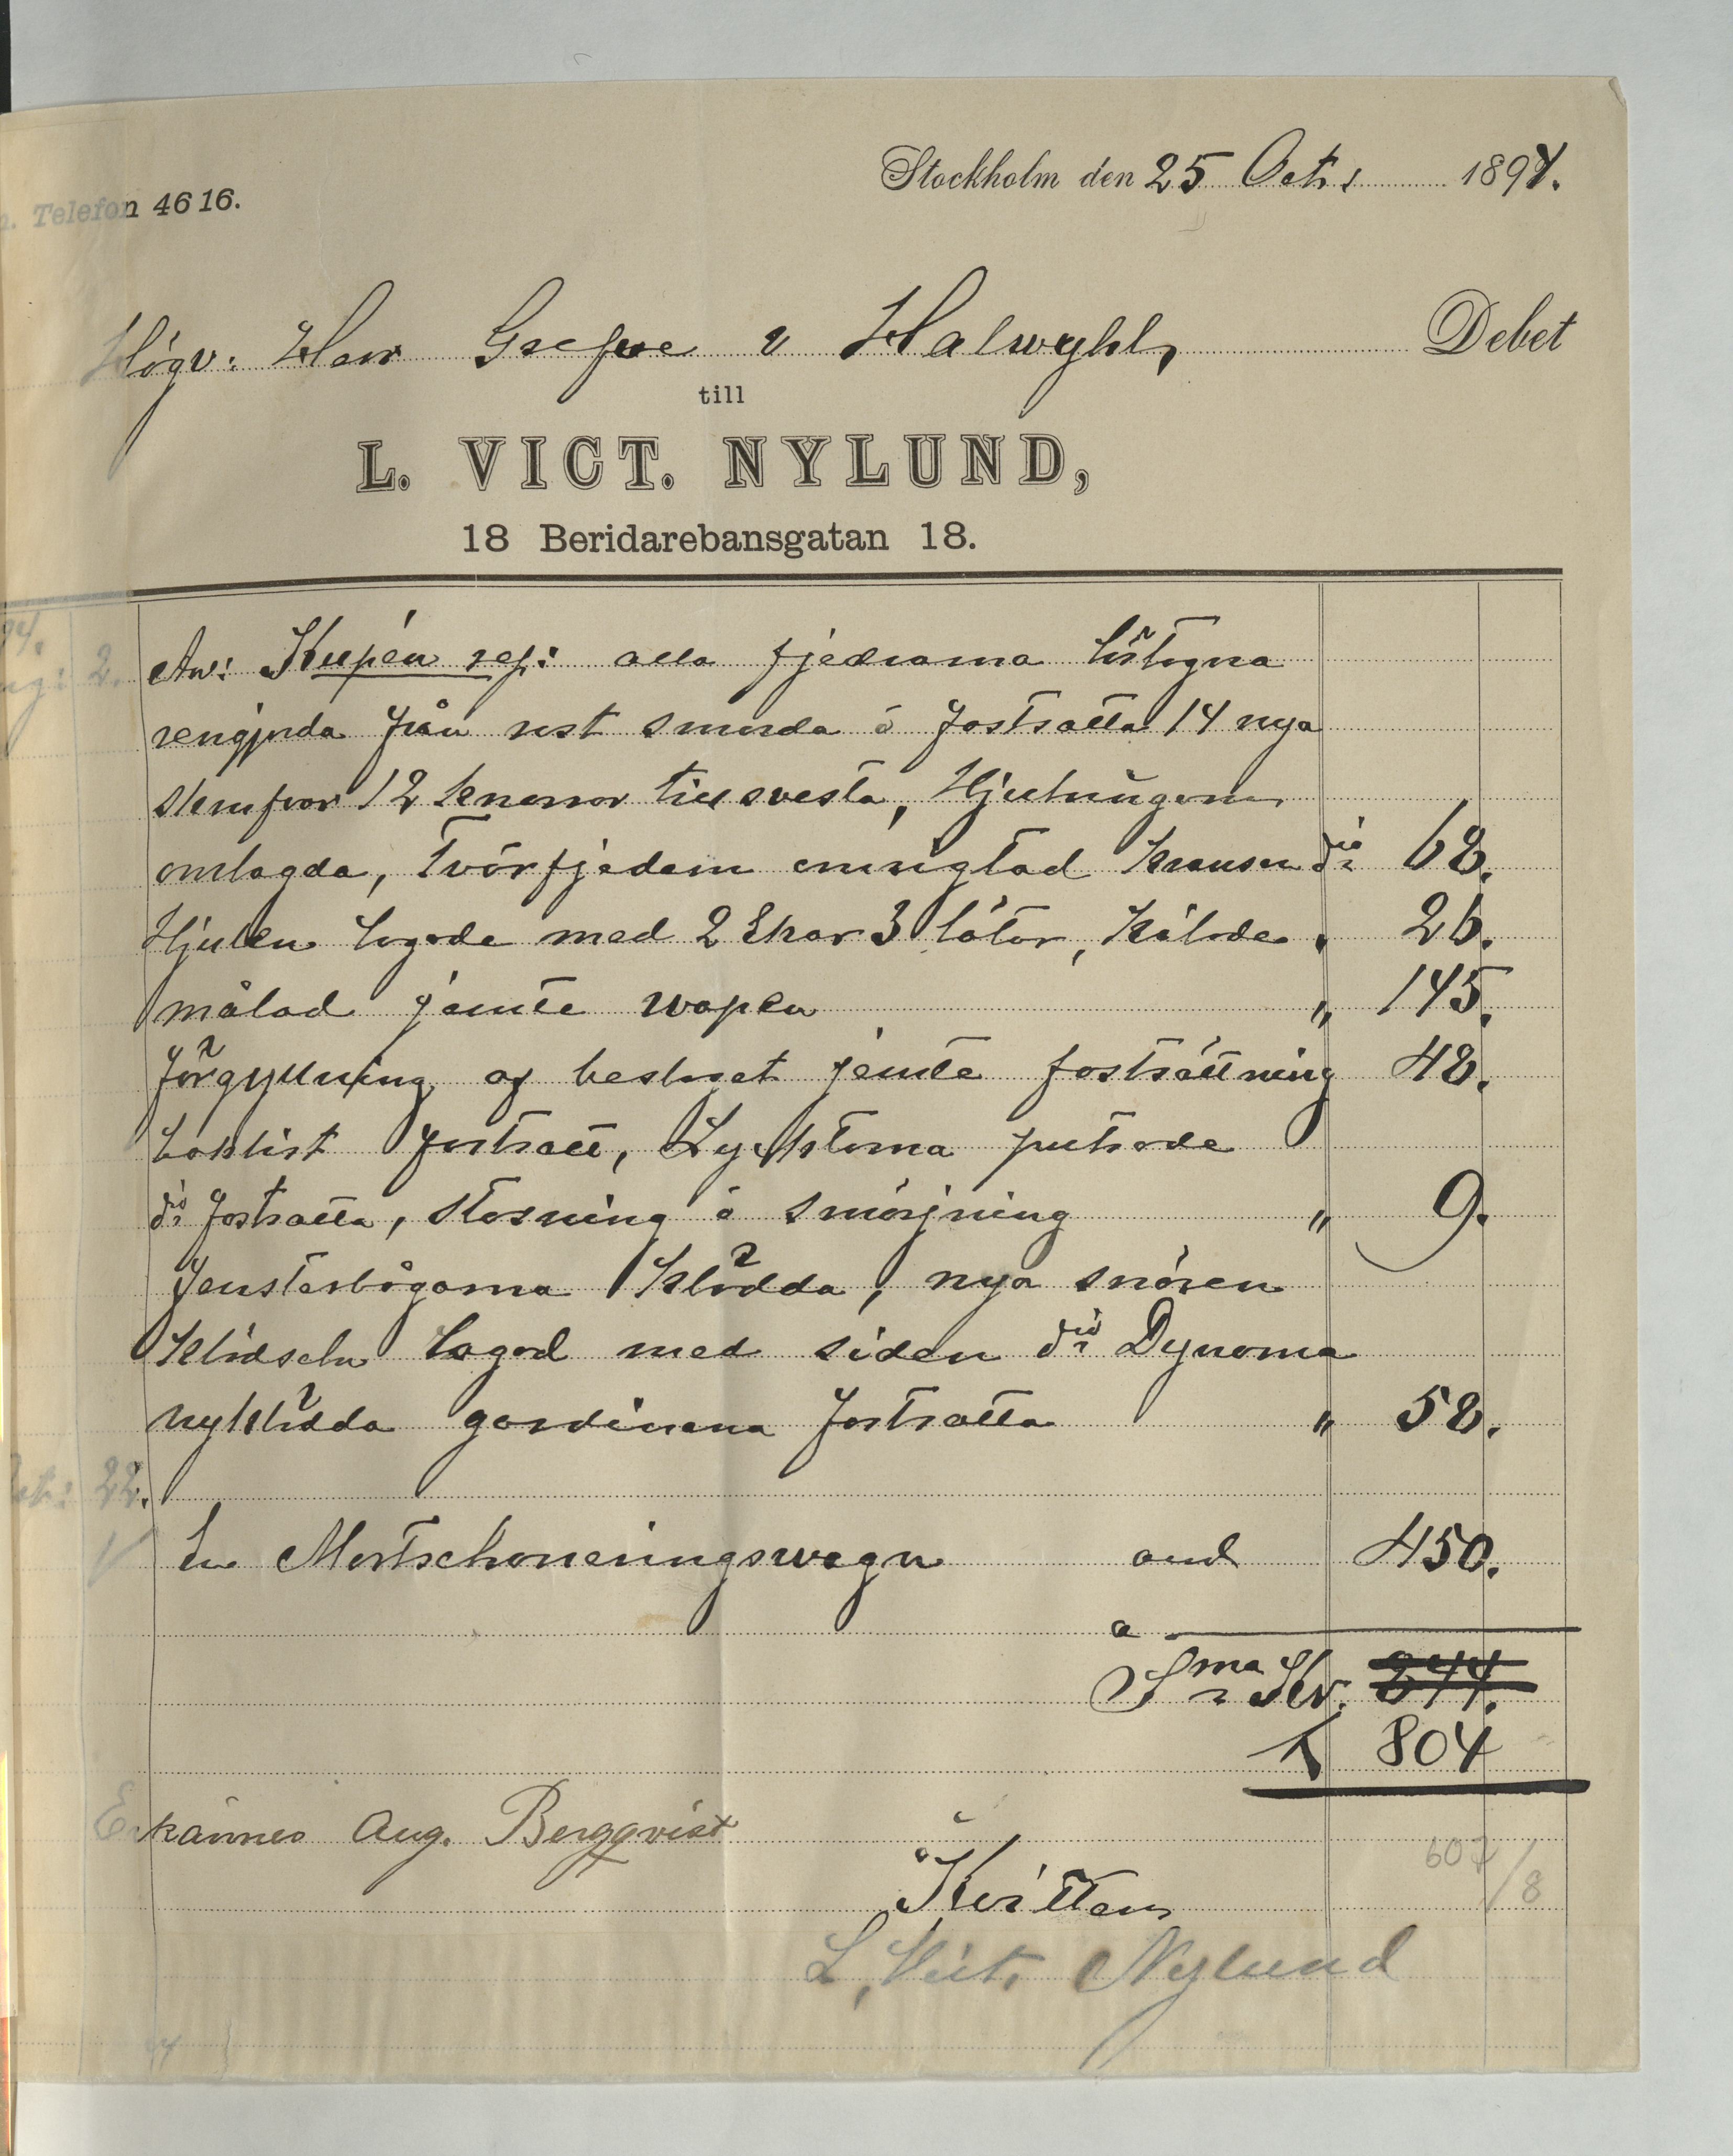 Stockholm den 25 Oct. 1894.
Telefon 4616.
Högv: Herr Grefve v Halwyhl, Debet
till
L. VICT. NYLUND,
18 Beridarebansgatan 18.
94.
2. Aw: Kupén rep: alla fjedrarna löstagna
rengjorda från rost smorda o fastsatta 14 nya
skrufvar 12 tillsvesta, Hjulringarna
omlagda, Tvärfjedern omrigtad Kransen d:o 68.
Hjulen lagade med 2 Ekar 3 lötar, Kilade " 26.
målad jämte wapen " 145.
Förgyllning af beslaget jämte fastsättning 48.
Locklist fastsatt, Lyktorna putsade
d:o fastsatta, Losning o smörjning " 9.
Fensterbågarna Klädda, nya snören
Klädseln lagad med siden d:o Dynorna
nyklädda gardinerna fastsatta " 58.
22.
En wagn 450.
S:ma Kr. 244.
804
Erkännes Aug. Bergqvist
607/8
Kvitteras
L. Vict. Nylund